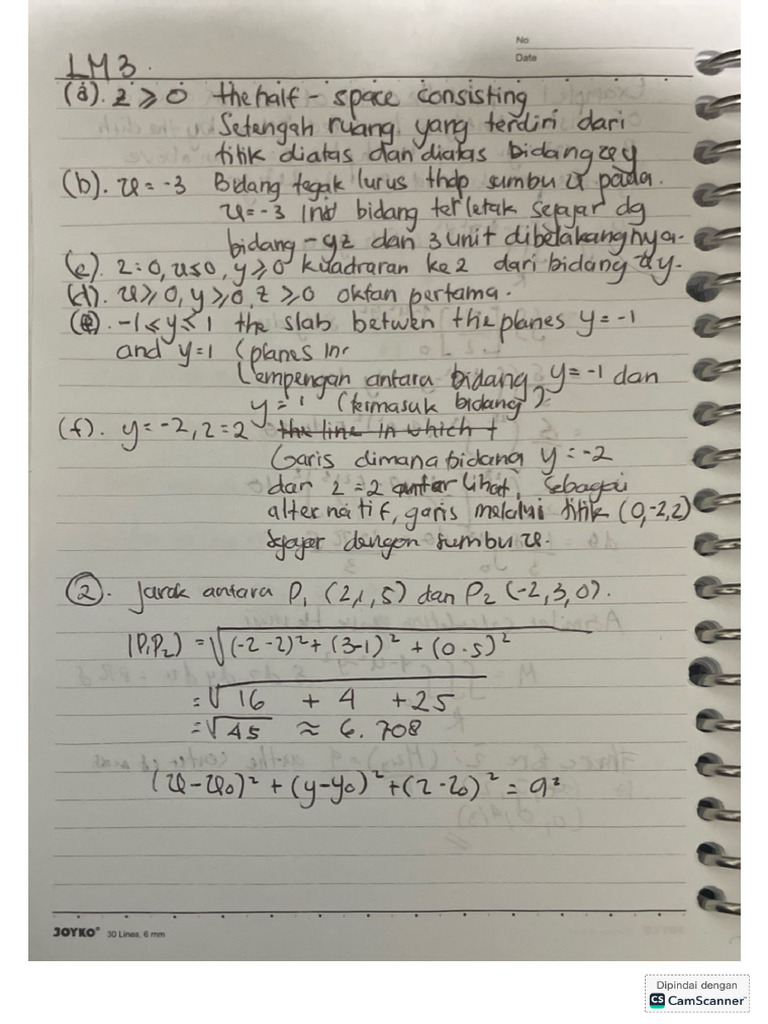 No
Date
LM3.
(a). z ≥ 0 the half - space consisting
Setengah ruang yang terdiri dari
titik diatas dan diatas bidang xy
(b). x = -3 Bidang tegak lurus thdp sumbu x pada.
x = -3 Ini bidang terletak sejajar dg
bidang - yz dan 3 unit dibelakangnya.
(c). z = 0, x ≤ 0, y ≥ 0 kuadraran ke 2 dari bidang xy.
(d). x ≥ 0, y ≥ 0, z ≥ 0 oktan pertama.
(e). -1 ≤ y ≤ 1 the slab betwen the planes y = -1
and y = 1 (planes in
Lempengan antara bidang y = -1 dan
y = 1 (termasuk bidang)
(f). y = -2, z = 2 the line in which t
Garis dimana bidang y = -2
dan z = 2 lihat, sebagai
alternatif, garis melalui titik (0,-2,2)
sejajar dengan sumbu x.
②. Jarak antara P₁ (2,1,5) dan P₂ (-2,3,0).
|P₁P₂) = √(-2-2)² + (3-1)² + (0-5)²
= √16 + 4 + 25
= √45 ≈ 6.708
(x-x₀)² + (y-y₀)² + (z-z₀)² = a²
JOYKO® 30 Lines, 6 mm
Dipindai dengan
CS CamScanner